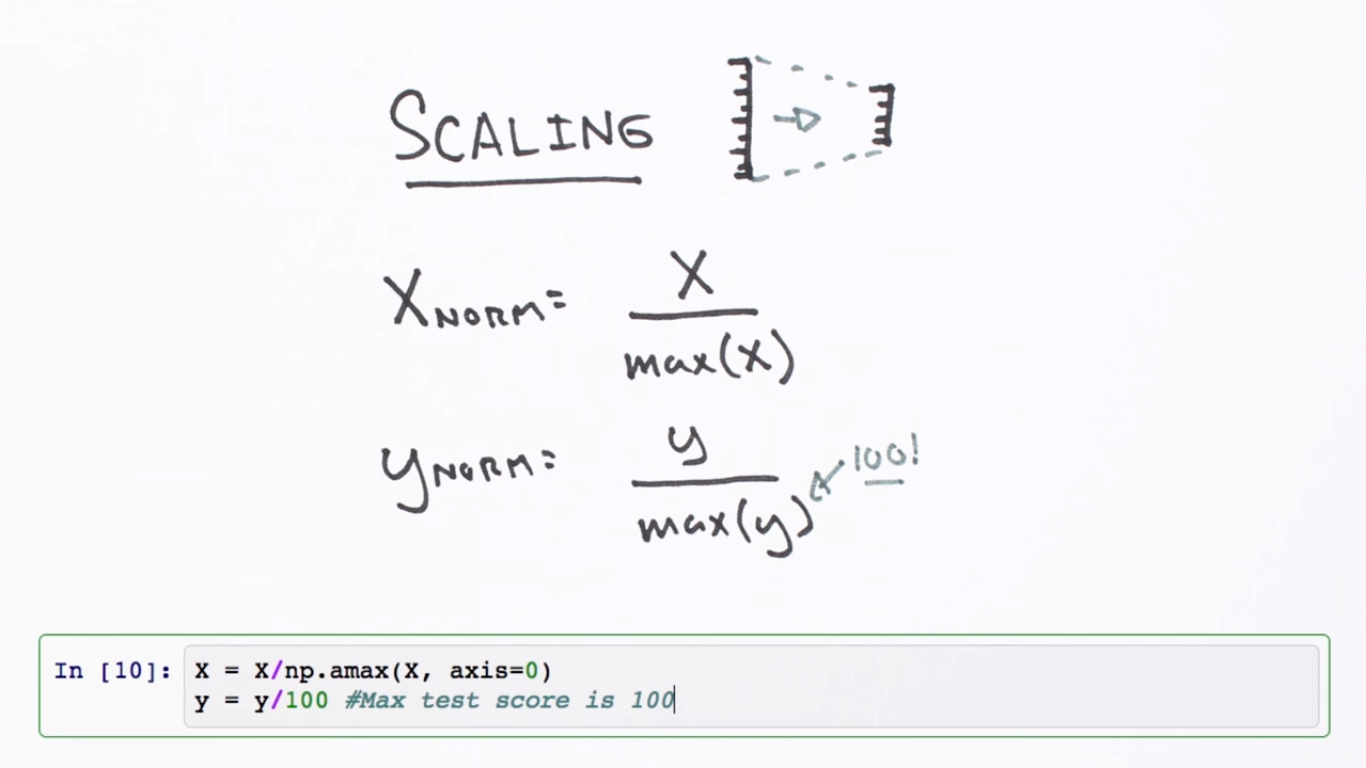 SCALING
XNORM= X / max(X)
yNORM= y / max(y) 100!
In [10]: X = X/np.amax(X, axis=0)
y = y/100 #Max test score is 100